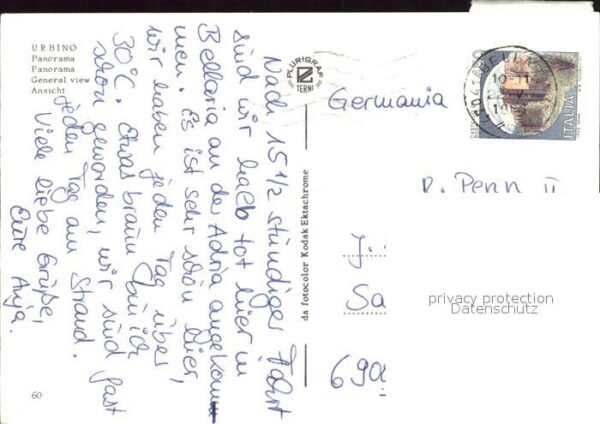 URBINO
Panorama
Panorama
General view
Ansicht
Nach 15 1/2 stündiger Fahrt
sind wir halb tot hier in
Bellaria an der Adria angekom-
men. Es ist sehr schön hier,
wir haben jeden Tag über
30°C. Etwas braun bin ich
schon geworden, wir sind fast
jeden Tag am Strand.
Viele liebe Grüße,
Eure Anja.
60
PLURIGRAF
TERNI
da fotocolor Kodak Ektachrome
ITALIA
Germania
D. Penn II
J
Sa
690
privacy protection
Datenschutz